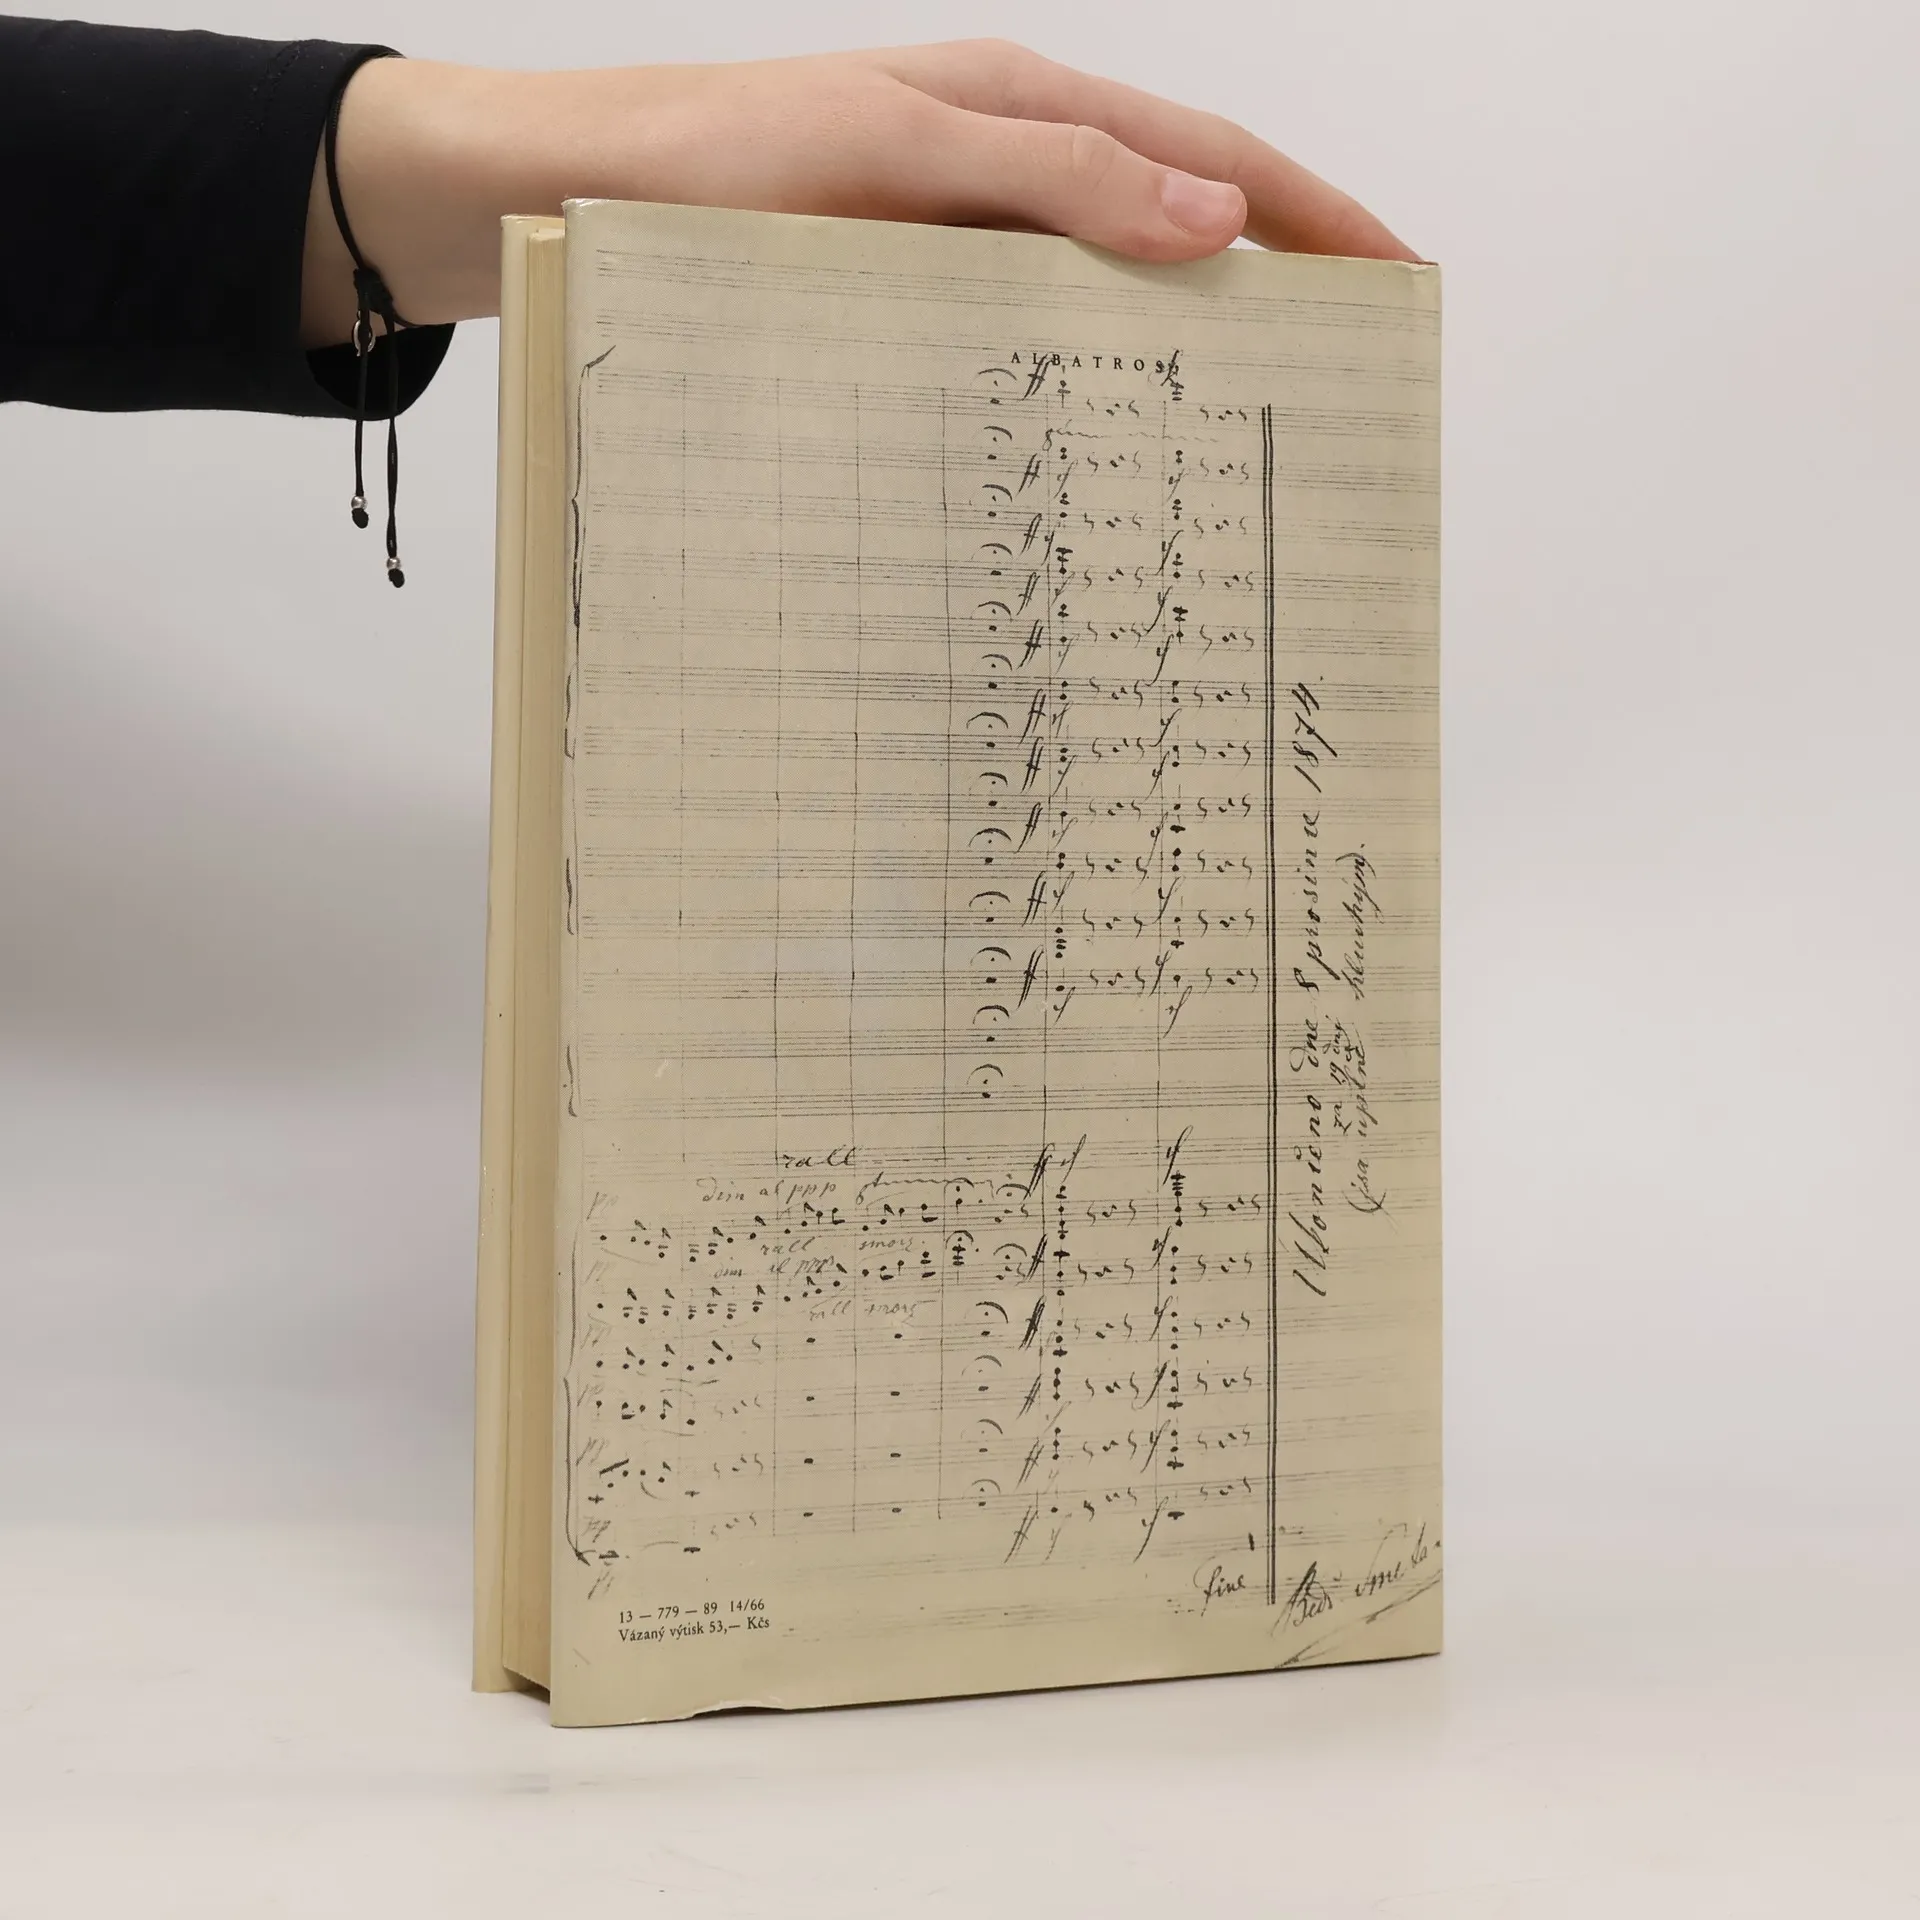 ALBATROS
rall
dim al ppp
rall smorz.
dim al ppp
rall smorz
Ukončeno dne 8 prosince 1874
za 19 dní
jsa úplně hluchým.
fine
Bedř Smetana
13 — 779 — 89 14/66
Vázaný výtisk 53,— Kčs